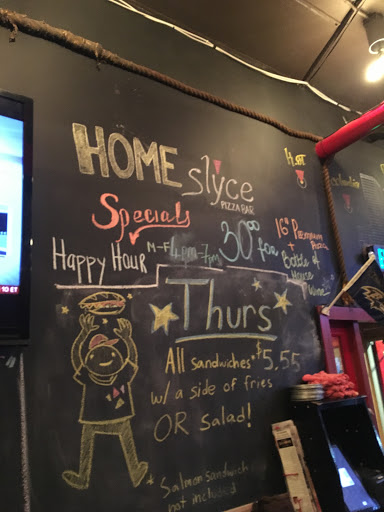 HOME
slyce
PIZZA BAR
Hot
Specials
Happy Hour M-F 4pm-7pm
30⁰⁰ for
16" Premium
+ 
Bottle of
House
Wine
Thurs
All sandwiches $5.55
w/ a side of fries
OR salad!
* Salmon sandwich
not included